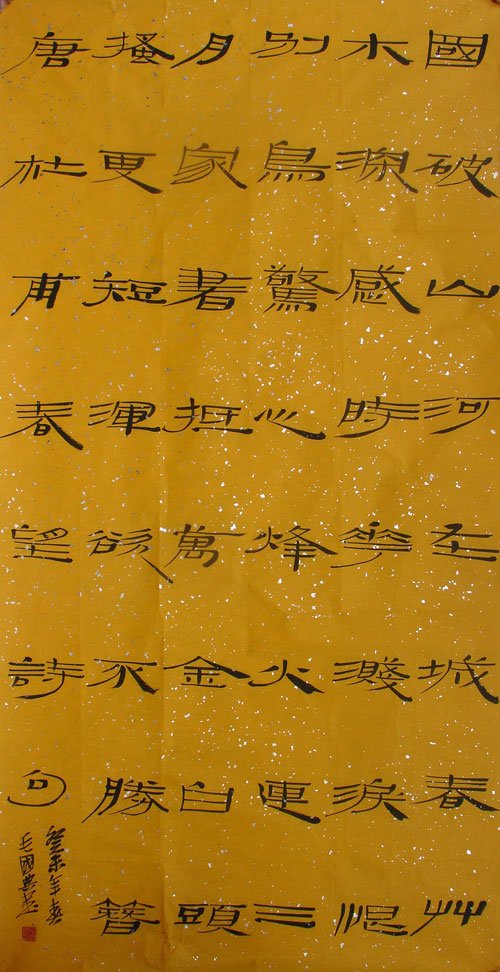 國破山河在城春艸
木深感時華濺淚恨
別鳥驚心烽火連三
月家書抵萬金白頭
搔更短渾欲不勝簪
唐杜甫春望詩句
癸未年春
毛國典書